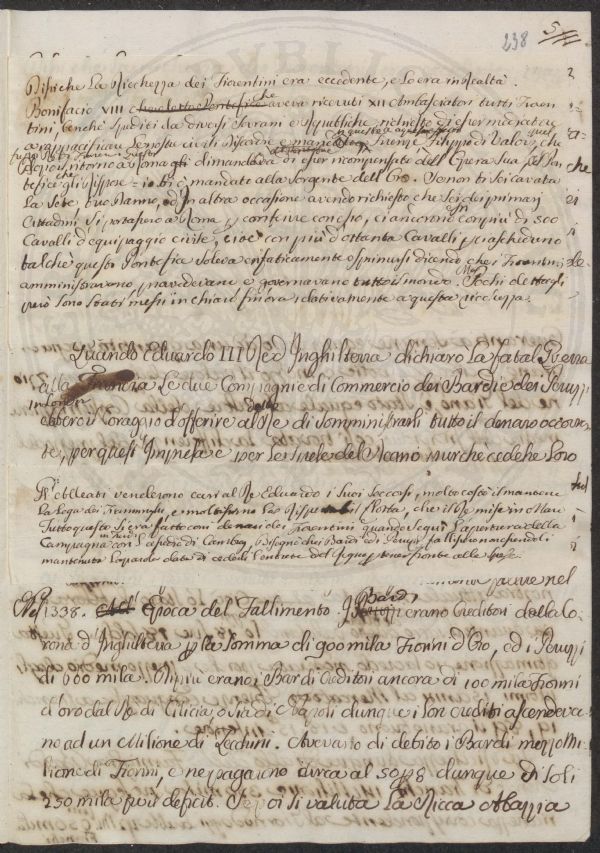 238 5
Dissi che La Ricchezza dei Fiorentini era eccedente, e Lo era in Realtà.
Bonifacio VIII che aveva ricevuti XII Ambasciatori tutti Fioren
tini, benche spediti da diversi Sovrani e Republiche, richiesto di esser mediatore
a rappacificare Le nostre civili Discordie e mandò Filippo di Valois, che
ritorno a Roma gli dimandava di esser ricompensato dell'Opera Sua, il Pon
tefice gli rispose = io vi ò mandato alla Sorgente dell'Oro. Se non ti sei cavata
La Sete, tuo danno, ed in altra occasione avendo richiesto che Sei di primari
Cittadini Si portassero a Roma p conferire con esso, ci andarono con più di 500
Cavalli d'equipaggio civile, cioè con più d'ottanta Cavalli p ciascheduno
talchè questo Pontefice soleva enfaticamente esprimersi dicendo che i Fiorentini
amministravano, provedevano e governavano tutto il mondo. Pochi dettagli
però Sono Stati messi in chiaro finora relativamente a questa ricchezza.
Quando Eduardo III Re d'Inghilterra dichiarò La fatal Guerra
alla Francia Le due Compagnie di Commercio dei Bardi e dei Peruzzi
in Londra
ebbero il coraggio d'offerire al Re di Somministrarli tutto il denaro occorren
te, per quest'Impresa e per Le Suole del Ricamo purchè cedesse Loro
li Alleati venderono cari al Re Eduardo i Suoi Soccorsi, molto costò il mantenere
La Lega dei Fiamminghi, e moltissimo La Flotta, che il Re mise in Mare
Tutto questo Si era fatto con i denari dei Fiorentini quando Seguì L'apertura della
Campagna con L'assedio di Cambray bisognò che i Bardi ed i Peruzzi fallissero non essendoli
mantenuta La parola data di cederli L'entrate del Regno p tener fronte alle Spese.
nel
1338. Epoca del Fallimento I Bardi erano Creditori della Co
rona d'Inghilterra p La Somma di 900 mila Fiorini d'Oro, ed i Peruzzi
di 600 mila. Di più erano i Bardi Creditori ancora di 100 mila Fiorini
d'oro dal Re di Cilicia, o Sia di Napoli dunque i Lor crediti ascendeva
no ad un Milione di Zecchini. Avevano di debito i Bardi mezzo Mi
lione di Fiorini, e ne pagarono circa al 50 p8 dunque di soli
250 mila fu il deficit. Se poi Si valuta La Ricca Abazzia